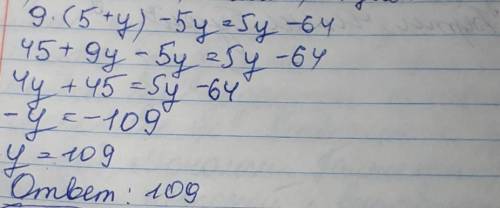 9·(5+y)-5y=5y-64
45+9y-5y=5y-64
4y+45=5y-64
-y=-109
y=109
Ответ: 109